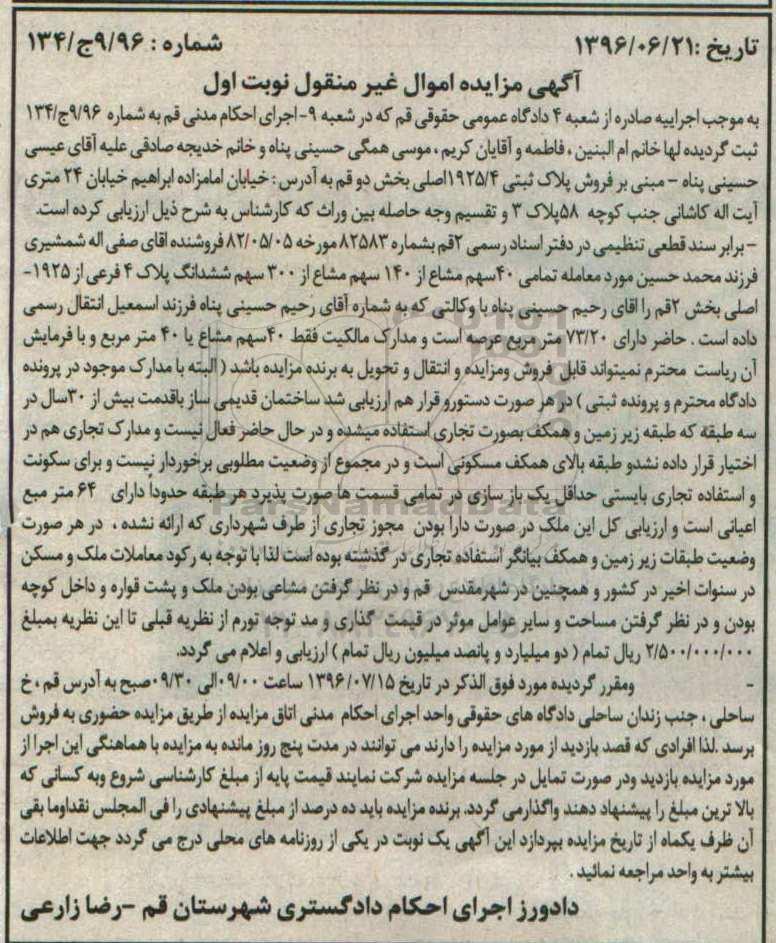 تاریخ :۱۳۹۶/۰۶/۲۱ شماره : ۹/۹۶ج/۱۳۴
آگهی مزایده اموال غیر منقول نوبت اول
به موجب اجراییه صادره از شعبه ۴ دادگاه عمومی حقوقی قم که در شعبه ۹- اجرای احکام مدنی قم به شماره ۹/۹۶ج/۱۳۴
ثبت گردیده لها خانم ام البنین ، فاطمه و آقایان کریم ، موسی همگی حسینی پناه و خانم خدیجه صادقی علیه آقای عیسی
حسینی پناه - مبنی بر فروش پلاک ثبتی ۱۹۲۵/۴اصلی بخش دو قم به آدرس : خیابان امامزاده ابراهیم خیابان ۲۴ متری
آیت اله کاشانی جنب کوچه ۵۸پلاک ۳ و تقسیم وجه حاصله بین وراث که کارشناس به شرح ذیل ارزیابی کرده است.
- برابر سند قطعی تنظیمی در دفتر اسناد رسمی ۲قم بشماره ۸۲۵۸۳ مورخه ۸۲/۰۵/۰۵ فروشنده اقای صفی اله شمشیری
فرزند محمد حسین مورد معامله تمامی ۴۰سهم مشاع از ۱۴۰ سهم مشاع از ۳۰۰ سهم ششدانگ پلاک ۴ فرعی از ۱۹۲۵-
اصلی بخش ۲قم را اقای رحیم حسینی پناه با وکالتی که به شماره آقای رحیم حسینی پناه فرزند اسمعیل انتقال رسمی
داده است . حاضر دارای ۷۳/۲۰ متر مربع عرصه است و مدارک مالکیت فقط ۴۰سهم مشاع یا ۴۰ متر مربع و با فرمایش
آن ریاست محترم نمیتواند قابل فروش ومزایده و انتقال و تحویل به برنده مزایده باشد ( البته با مدارک موجود در پرونده
دادگاه محترم و پرونده ثبتی ) در هر صورت دستورو قرار هم ارزیابی شد ساختمان قدیمی ساز باقدمت بیش از ۳۰سال در
سه طبقه که طبقه زیر زمین و همکف بصورت تجاری استفاده میشده و در حال حاضر فعال نیست و مدارک تجاری هم در
اختیار قرار داده نشدو طبقه بالای همکف مسکونی است و در مجموع از وضعیت مطلوبی برخوردار نیست و برای سکونت
و استفاده تجاری بایستی حداقل یک باز سازی در تمامی قسمت ها صورت پذیرد هر طبقه حدوداً دارای ۶۴ متر مبع
اعیانی است و ارزیابی کل این ملک در صورت دارا بودن مجوز تجاری از طرف شهرداری که ارائه نشده ، در هر صورت
وضعیت طبقات زیر زمین و همکف بیانگر استفاده تجاری در گذشته بوده است لذا با توجه به رکود معاملات ملک و مسکن
در سنوات اخیر در کشور و همچنین در شهرمقدس قم و در نظر گرفتن مشاعی بودن ملک و پشت قواره و داخل کوچه
بودن و در نظر گرفتن مساحت و سایر عوامل موثر در قیمت گذاری و مد توجه تورم از نظریه قبلی تا این نظریه بمبلغ
۲/۵۰۰/۰۰۰/۰۰۰ ریال تمام ( دو میلیارد و پانصد میلیون ریال تمام ) ارزیابی و اعلام می گردد.
- ومقرر گردیده مورد فوق الذکر در تاریخ ۱۳۹۶/۰۷/۱۵ ساعت ۰۹/۰۰الی ۰۹/۳۰صبح به آدرس قم ، خ
ساحلی ، جنب زندان ساحلی دادگاه های حقوقی واحد اجرای احکام مدنی اتاق مزایده از طریق مزایده حضوری به فروش
برسد .لذا افرادی که قصد بازدید از مورد مزایده را دارند می توانند در مدت پنج روز مانده به مزایده با هماهنگی این اجرا از
مورد مزایده بازدید ودر صورت تمایل در جلسه مزایده شرکت نمایند قیمت پایه از مبلغ کارشناسی شروع وبه کسانی که
بالا ترین مبلغ را پیشنهاد دهند واگذارمی گردد. برنده مزایده باید ده درصد از مبلغ پیشنهادی را فی المجلس نقداوما بقی
آن ظرف یکماه از تاریخ مزایده بپردازد این آگهی یک نوبت در یکی از روزنامه های محلی درج می گردد جهت اطلاعات
بیشتر به واحد مراجعه نمائید .
دادورز اجرای احکام دادگستری شهرستان قم -رضا زارعی
ParsNamadData